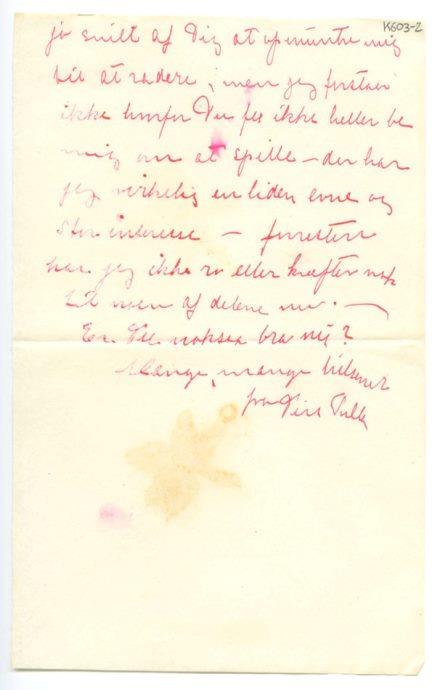 K603-2
jo snilt af Dig at opmuntre mig
til at radere, men jeg forstaar
ikke hvorfor Du fex ikke heller be
mig om at spille – der har
jeg virkelig en liden evne og
stor interesse – forresten
har jeg ikke ro eller kræfter nok
til noen af delene nu. –
Er Du noksaa bra nu?
Mange, mange hilsener
fra Din Tulla